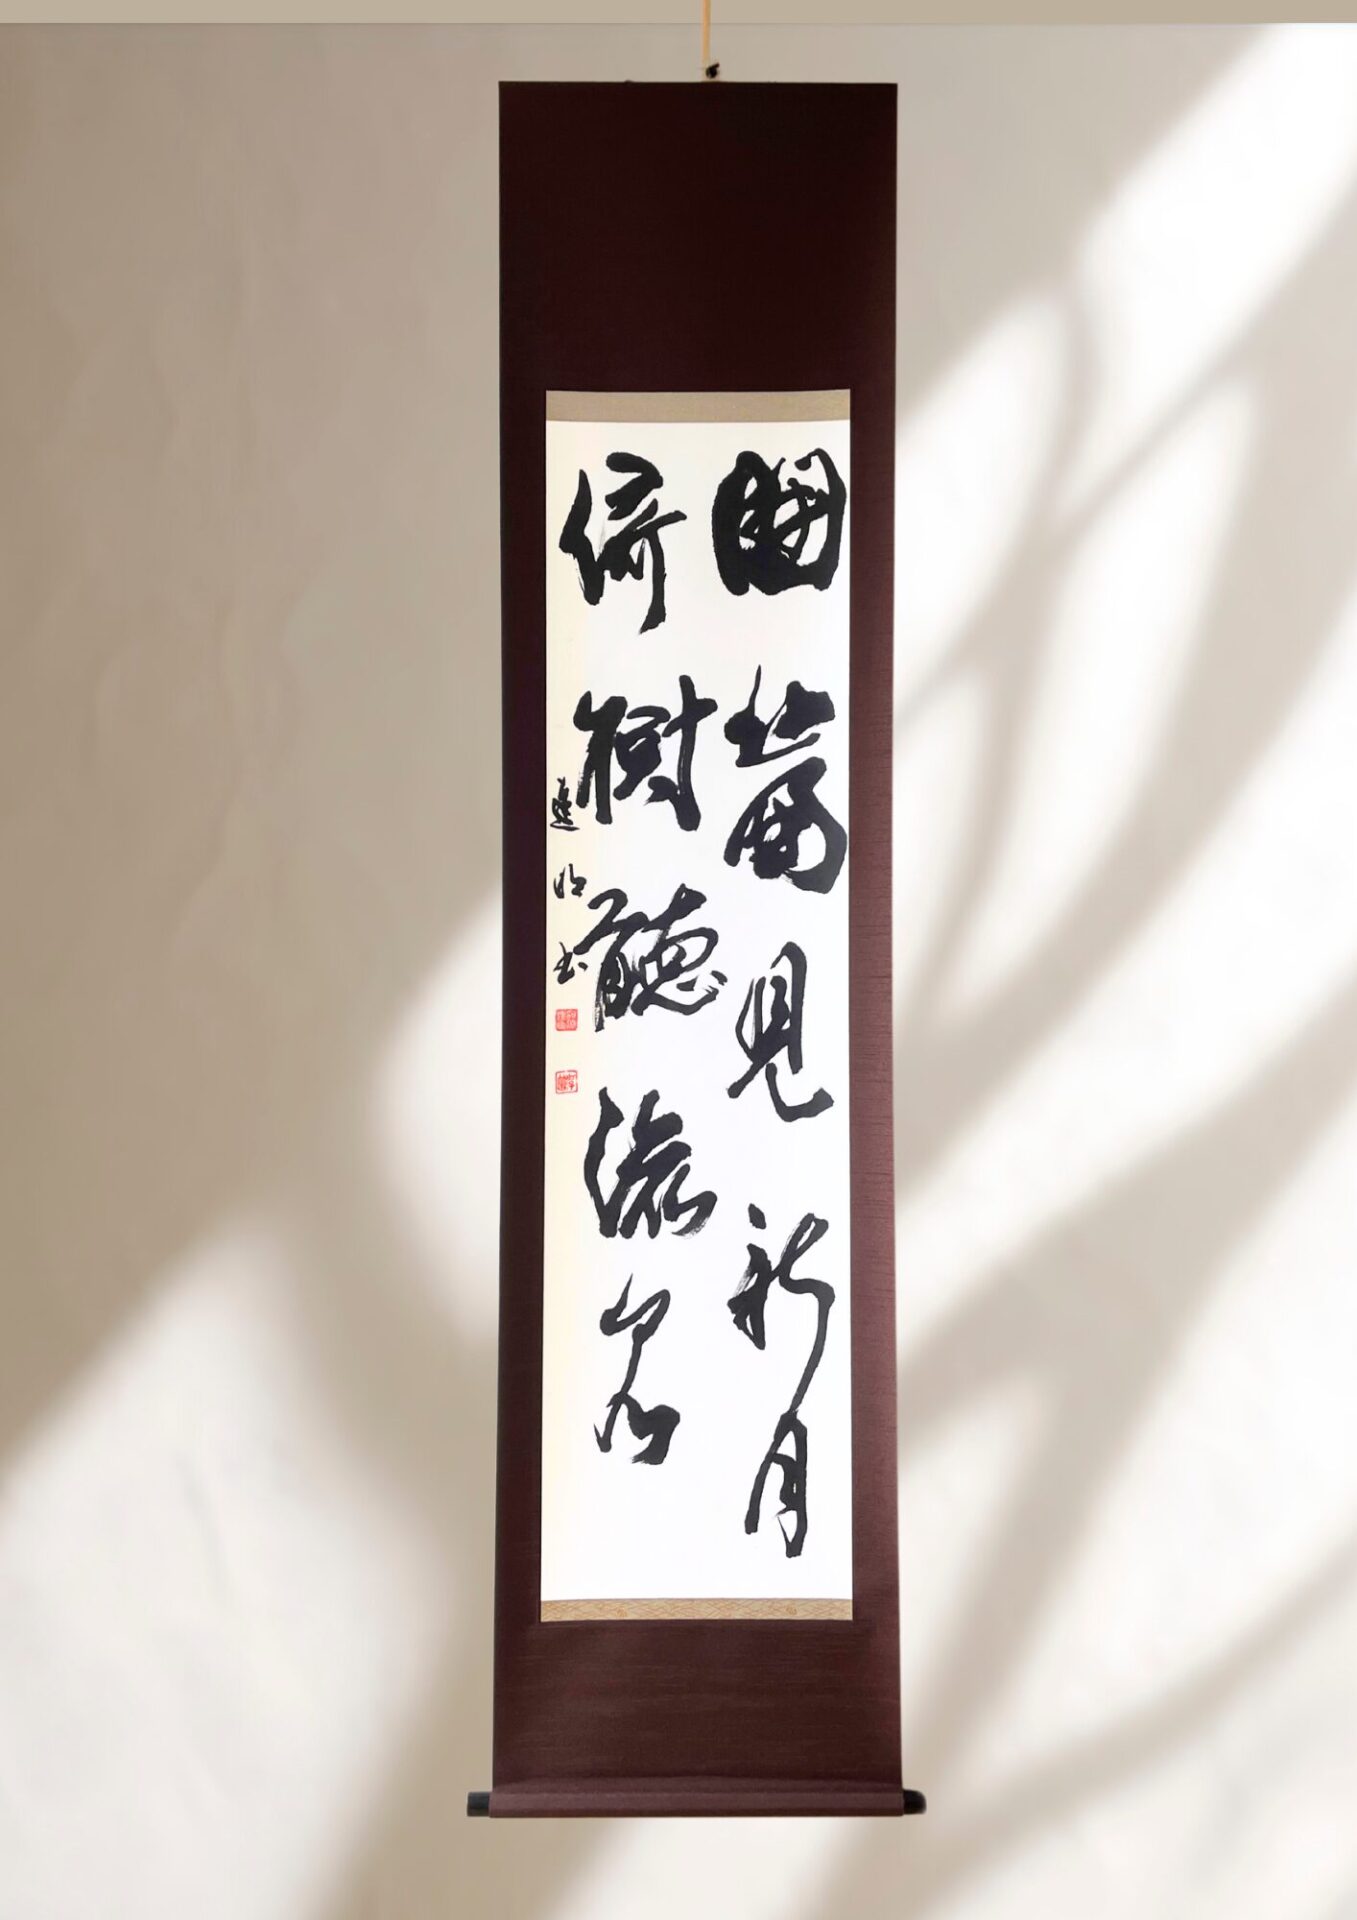 開簾見新月
倚樹聴流泉